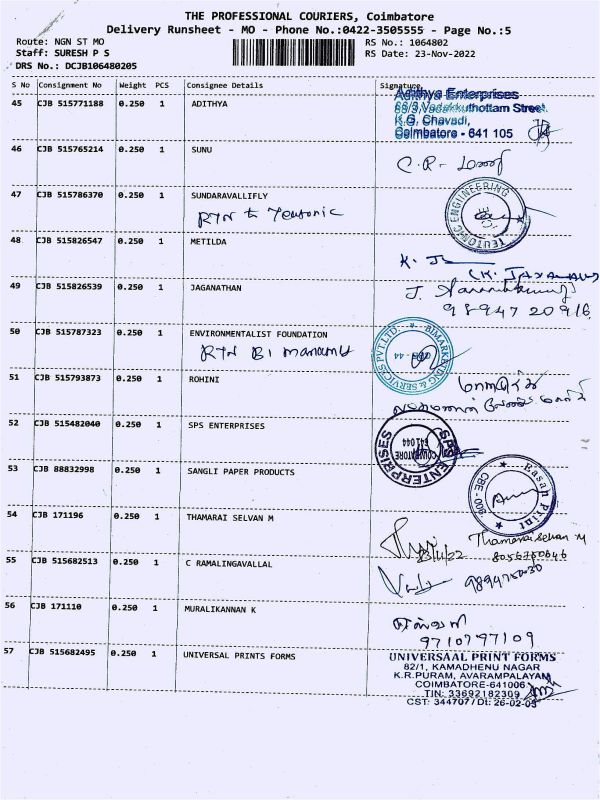 THE PROFESSIONAL COURIERS, Coimbatore
Delivery Runsheet - MO - Phone No.:0422-3505555 - Page No.:5
Route: NGN ST MO
RS No.: 1064802
Staff: SURESH P S
RS Date: 23-Nov-2022
DRS No.: DCJB106480205
S No Consignment No Weight PCS Consignee Details Signature
45 CJB 515771188 0.250 1 ADITHYA
Adithya Enterprises
66/3, Vadakkuthottam Street,
K.G. Chavadi,
Coimbatore - 641 105
46 CJB 515765214 0.250 1 SUNU
C.R-
47 CJB 515786370 0.250 1 SUNDARAVALLIFLY
RTN to Teutonic
TEUTONIC ENGINEERING
48 CJB 515826547 0.250 1 METILDA
K. J
49 CJB 515826539 0.250 1 JAGANATHAN
J.
98947 20916
50 CJB 515787323 0.250 1 ENVIRONMENTALIST FOUNDATION
RTN Bi
BIMARKETING & SERVICES PVT.LTD
51 CJB 515793873 0.250 1 ROHINI
52 CJB 515482040 0.250 1 SPS ENTERPRISES
SPS ENTERPRISES
COIMBATORE
641 044
53 CJB 88832998 0.250 1 SANGLI PAPER PRODUCTS
Print
CBE
54 CJB 171196 0.250 1 THAMARAI SELVAN M
23/11/22
Thamarai selvan M
55 CJB 515682513 0.250 1 C RAMALINGAVALLAL
56 CJB 171110 0.250 1 MURALIKANNAN K
9710797109
57 CJB 515682495 0.250 1 UNIVERSAL PRINTS FORMS
UNIVERSAAL PRINT FORMS
82/1, KAMADHENU NAGAR
K.R.PURAM, AVARAMPALAYAM
COIMBATORE-641006
TIN: 33692182309
CST: 344707/Dt: 26-02-03